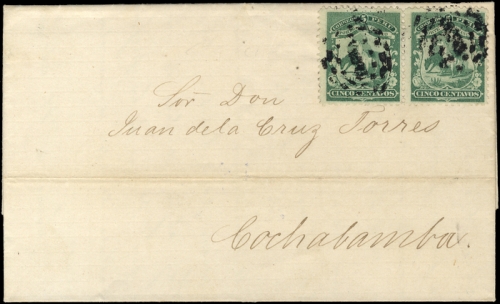 CORREOS PERU
CINCO CENTAVOS
CINCO CENTAVOS
Sor Don
Juan de la Cruz Torres
Cochabamba.